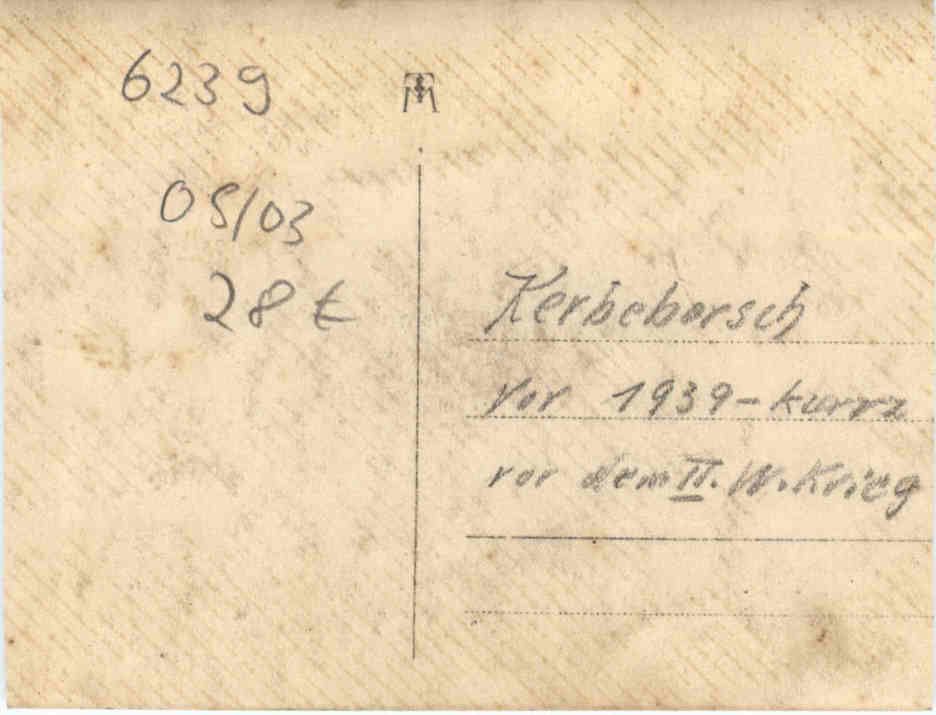 6239
05/03
28 €
Kerbeborsch
vor 1939 - kurz
vor dem II. W. Krieg